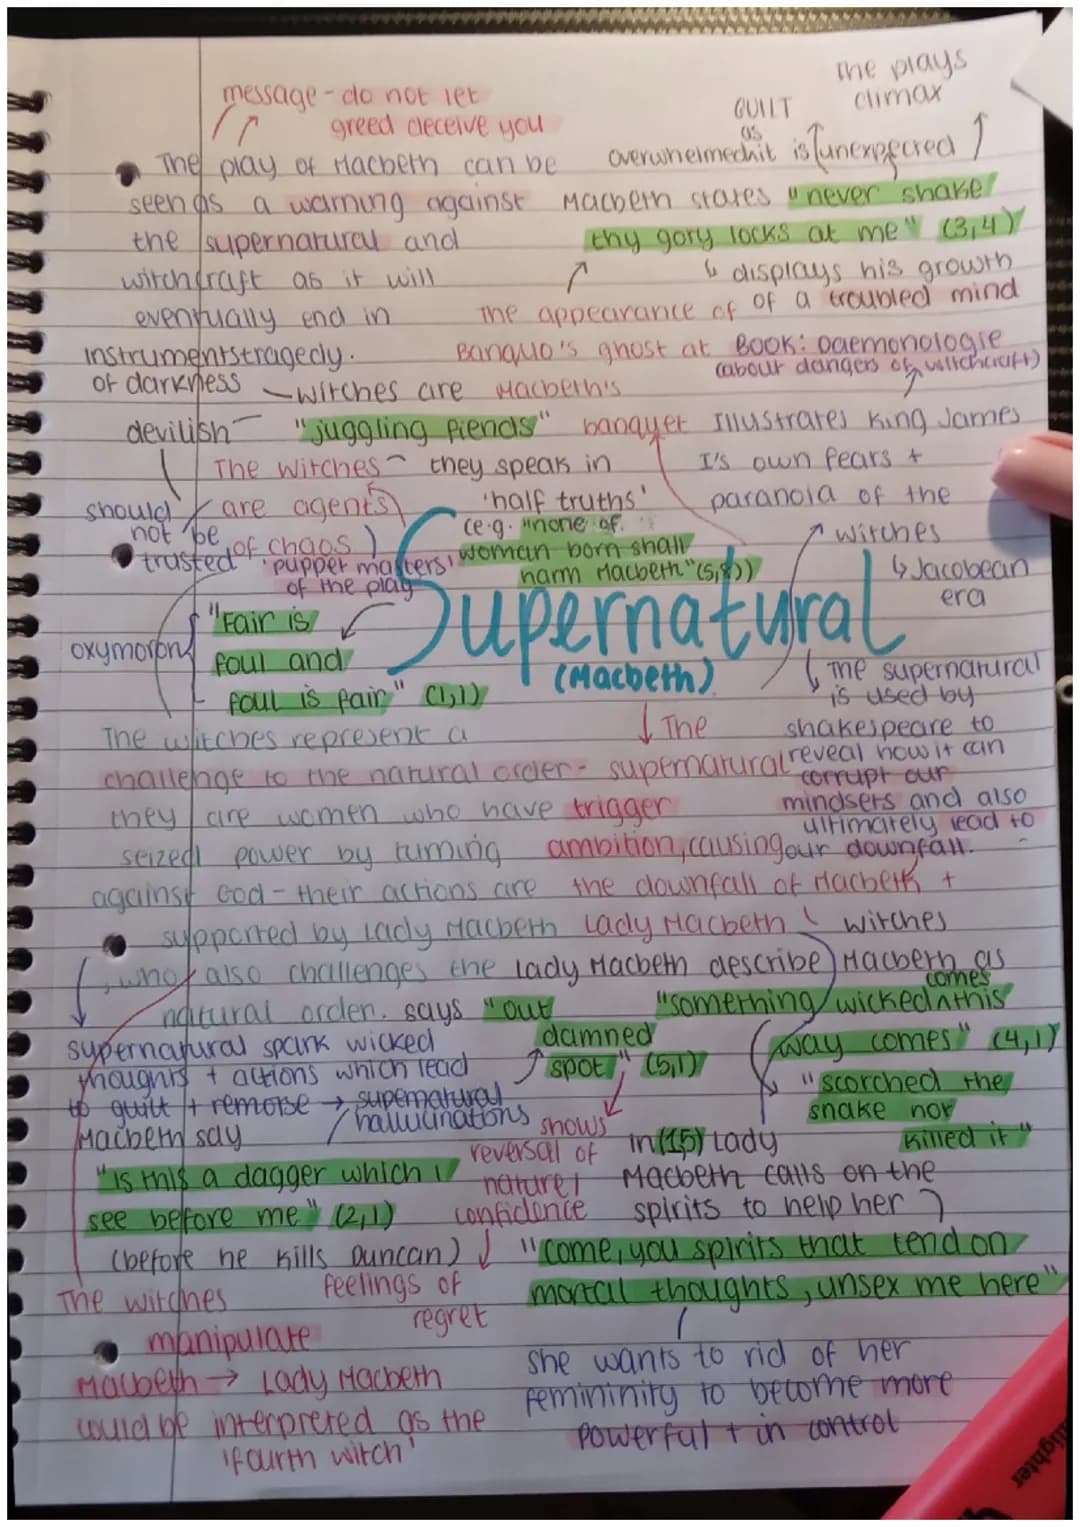 message - do not let
greed deceive you
The play of Macbeth can be
seen as a warning against
the supernatural and
witchcraft as it will
eventually end in
tragedy.
The plays
climax
GUILT
as
overwhelmed it is unexpected
Macbeth states "never shake
thy gory locks at me" (3,4)
↳ displays his growth
of a troubled mind
The appearance of
Banquo's ghost at
Macbeth's
banquet
Book: Daemonologie
(about dangers of witchcraft)
Illustrates King James
I's own fears +
paranoia of the
witches
↳ Jacobean
era
instruments
of darkness
devilish
should
not be
trusted
witches are
"juggling fiends"
they speak in
'half truths'
(e.g. "none of
woman born shall
harm Macbeth" (5,8))
The witches
are agents
of chaos
'puppet masters'
of the play
oxymoron
"Fair is
foul and
foul is fair" (1,1)
Supernatural
(Macbeth)
↳ The supernatural
is used by
shakespeare to
reveal how it can
corrupt our
mindsets and also
ultimately lead to
our downfall.
↓ The
supernatural
trigger
ambition, causing
the downfall of Macbeth +
Lady Macbeth
The witches represent a
challenge to the natural order -
they are women who have
seized power by turning
against God - their actions are
supported by Lady Macbeth
, who also challenges the
natural order.
Lady Macbeth
says "out
damned
spot" (5,1)
shows
reversal of
nature /
confidence
↓
feelings of
regret
witches
describe Macbeth as
"something wicked comes this
way comes" (4,1)
"scorched the
snake not
killed it"
supernatural spark wicked
thoughts + actions which lead
to guilt + remorse → supernatural
hallucinations
Macbeth say
"is this a dagger which i
see before me" (2,1)
(before he kills Duncan)
in (1,5) Lady
Macbeth calls on the
spirits to help her
"Come, you spirits that tend on
mortal thoughts, unsex me here"
she wants to rid of her
femininity to become more
powerful + in control
The witches
manipulate
Macbeth → Lady Macbeth
could be interpreted as the
'fourth witch'